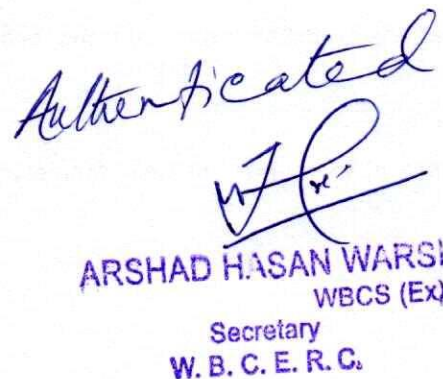 Authenticated
ARSHAD HASAN WARSI
WBCS (Ex)
Secretary
W. B. C. E. R. C.